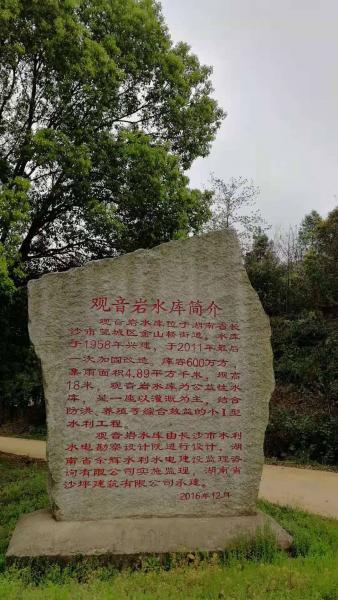 观音岩水库简介
观音岩水库位于湖南省长
沙市望城区金山桥街道，水库
于1958年兴建，于2011年最后
一次加固改造，库容600万方，
集雨面积4.89平方千米，坝高
18米，观音岩水库为公益性水
库，是一座以灌溉为主，结合
防洪、养殖等综合效益的小I型
水利工程。
观音岩水库由长沙市水利
水电勘察设计院进行设计，湖
南省余辉水利水电建设监理咨
询有限公司实施监理，湖南省
沙坪建筑有限公司承建。
2016年12月